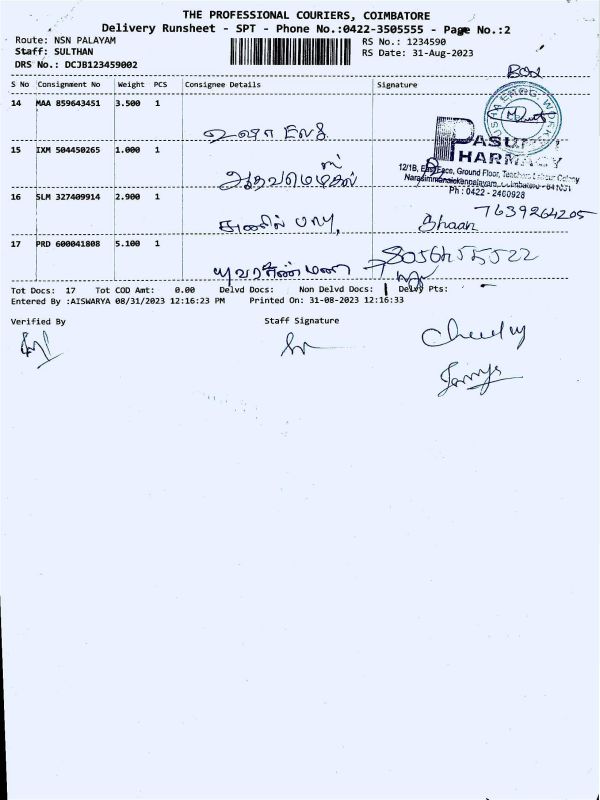 THE PROFESSIONAL COURIERS, COIMBATORE
Delivery Runsheet - SPT - Phone No.:0422-3505555 - Page No.:2
Route: NSN PALAYAM
RS No.: 1234590
Staff: SULTHAN
RS Date: 31-Aug-2023
DRS No.: DCJB123459002
S No Consignment No Weight PCS Consignee Details Signature
14 MAA 859643451 3.500 1
உஷா
15 IXM 504450265 1.000 1
PASUMAI
PHARMACY
12/1B, East Face, Ground Floor, Teachers Colony
Ph : 0422 - 2460928
16 SLM 327409914 2.900 1
7639264205
பாபு,
17 PRD 600041808 5.100 1
8056455522
Tot Docs: 17 Tot COD Amt: 0.00 Delvd Docs: Non Delvd Docs: Delvy Pts:
Entered By :AISWARYA 08/31/2023 12:16:23 PM Printed On: 31-08-2023 12:16:33
Verified By Staff Signature